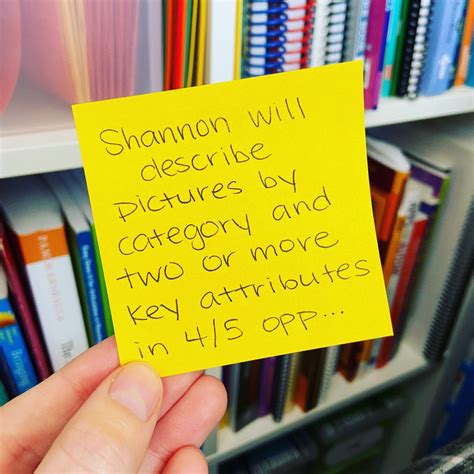 Shannon will
describe
pictures by
category and
two or more
key attributes
in 4/5 opp...